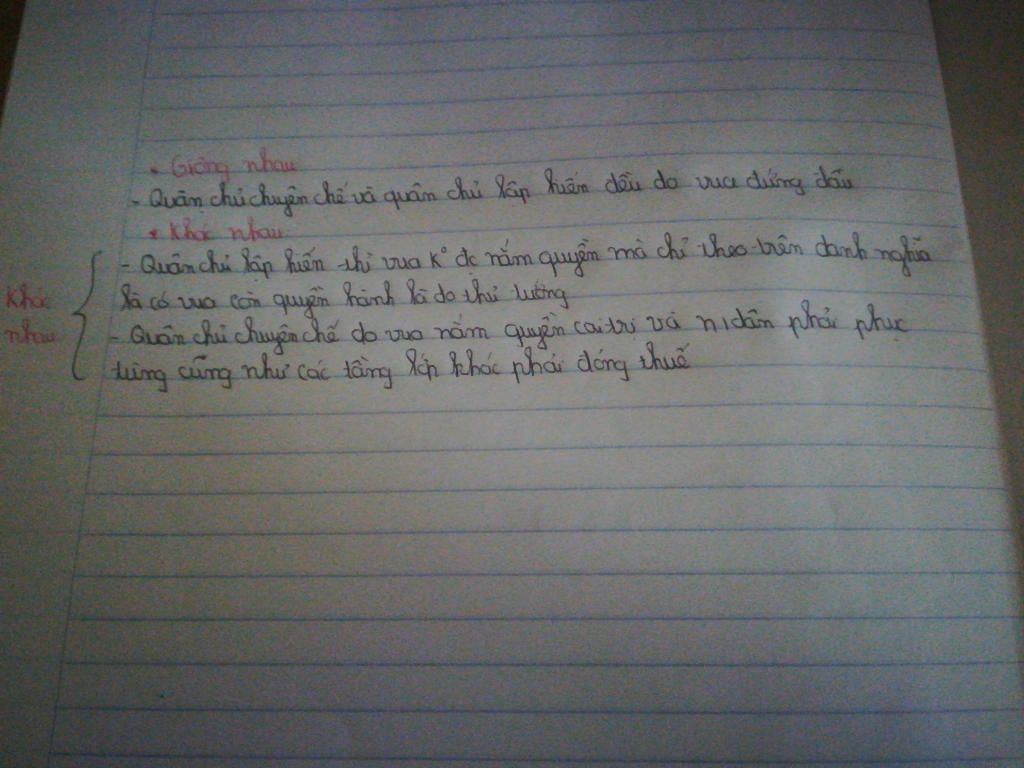 • Giống nhau
- Quân chủ chuyên chế và quân chủ lập hiến đều do vua đứng đầu
• Khác nhau
- Quân chủ lập hiến thì vua k° đc nắm quyền mà chỉ theo trên danh nghĩa
là có vua còn quyền hành là do thủ tướng
- Quân chủ chuyên chế do vua nắm quyền cai trị và n,dân phải phục
tùng cũng như các tầng lớp khác phải đóng thuế
Khác
nhau